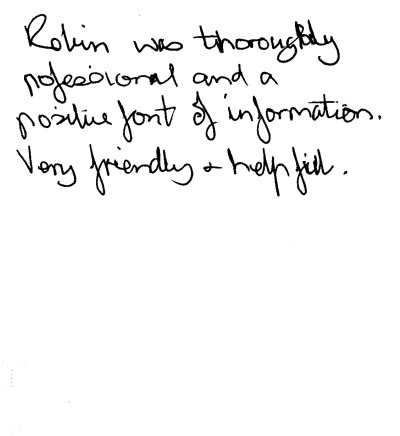 Robin was thoroughly
professional and a
positive font of information.
Very friendly + helpful.